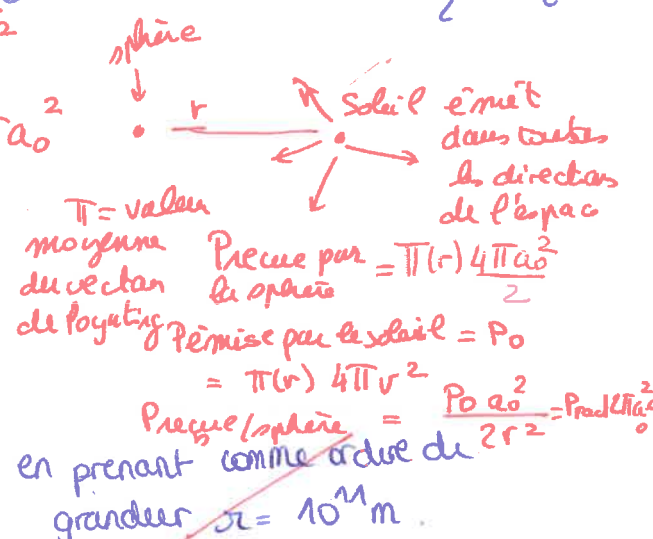 sphère
a₀²
r
Soleil émet
dans toutes
les directions
de l'espac
Π = valeur
moyenne
du vecteur
de Poynting
Preçue par la sphère = Π(r) 4πa₀²/2
Pémise par le soleil = P₀
= Π(r) 4πr²
Preçue/sphère = P₀ a₀²/2r² = Prad 2πa₀²
en prenant comme ordre de
grandeur r = 10¹¹ m.